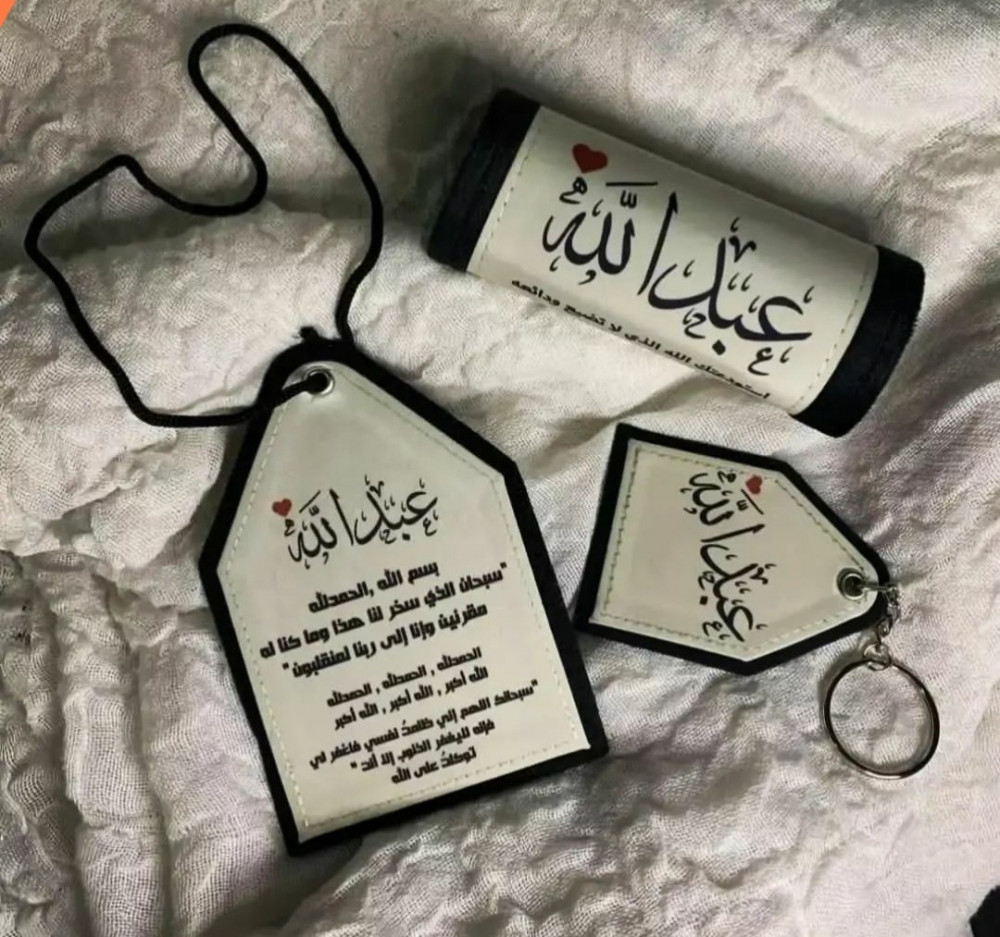 عبدالله
استودعتك الله الذي لا تضيع ودائعه
عبدالله
بسم الله ,الحمدلله
"سبحان الذي سخر لنا هذا وما كنا له
مقرنين وإنا إلى ربنا لمنقلبون"
الحمدلله , الحمدلله , الحمدلله
الله أكبر , الله أكبر , الله أكبر
"سبحانك اللهم إني ظلمتُ نفسي فاغفر لي
فإنه لايغفر الذنوب إلا أنت "
توكلتُ على الله
عبدالله